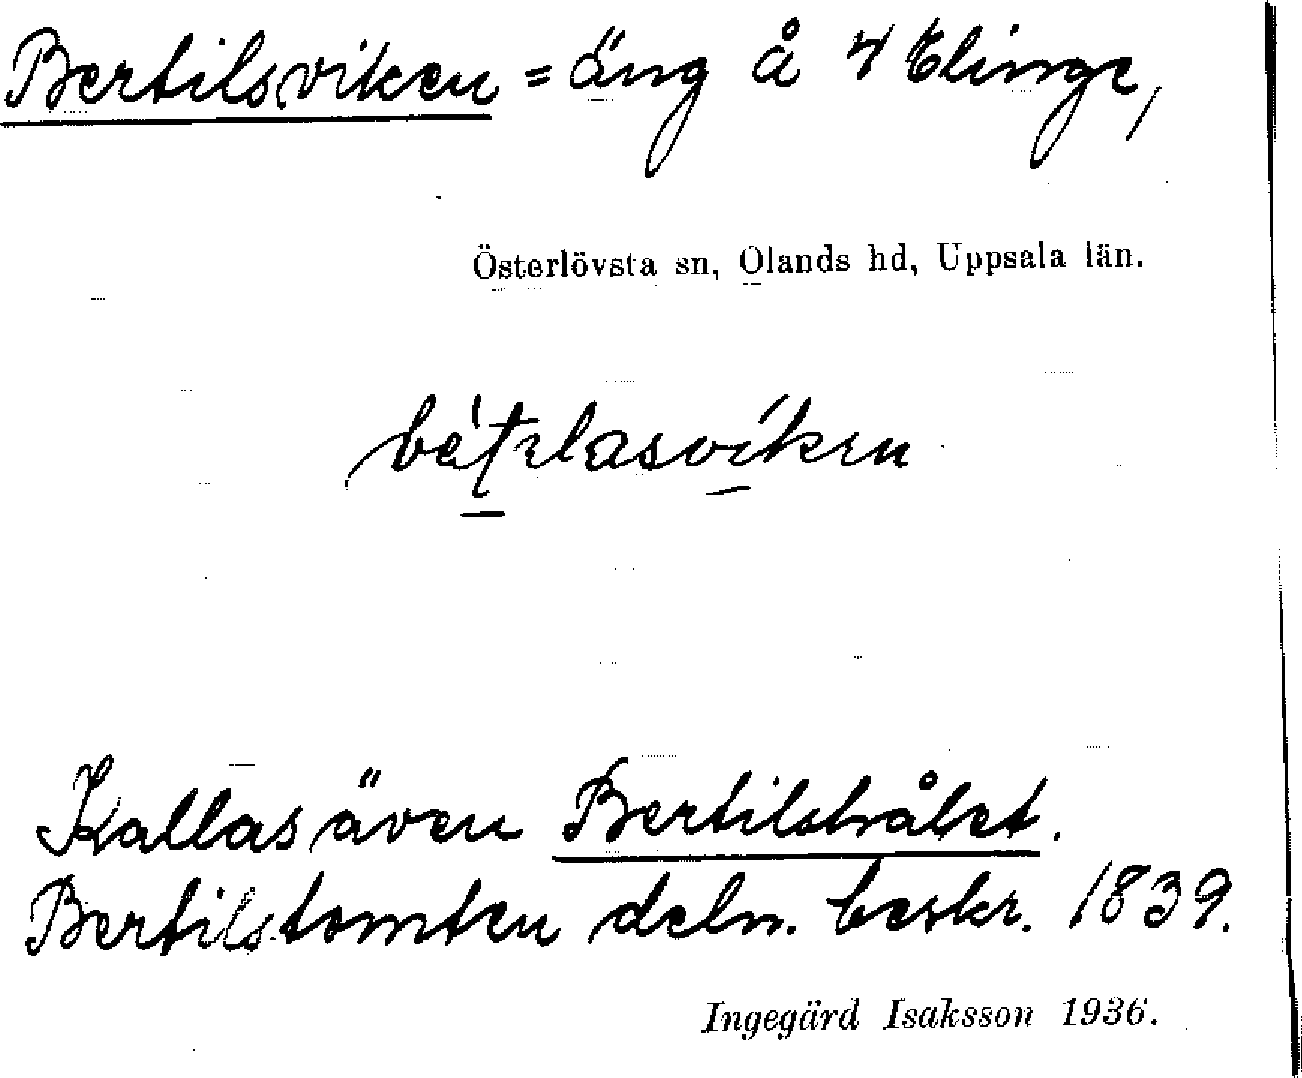 Bertilsviken = äng å 4 Elinge,
Österlövsta sn, Olands hd, Uppsala län.
Kallas även Bertilstrålet.
Bertilstomten deln. beskr. 1839.
Ingegärd Isaksson 1936.